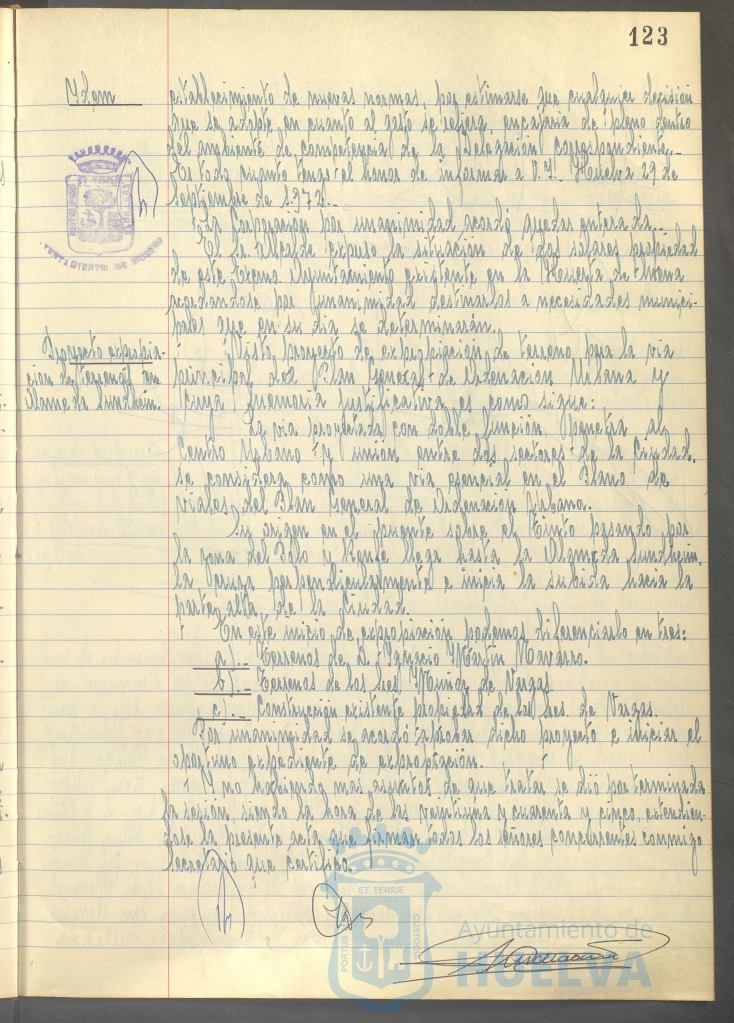 123
Idem
establecimiento de nuevas normas, por estimarse que cualquier decisión
que se adopte en cuanto al gasto se refiera, encajaría de pleno dentro
del ambiente de competencia de la Delegación correspondiente.-
Es todo cuanto tengo el honor de informar a V.I. Huelva 29 de
septiembre de 1.972.-
La Corporación por unanimidad acordó quedar enterada.
El Sr. Alcalde expuso la situación de dos solares propiedad
de este Excmo Ayuntamiento existente en la Huerta de Mena
acordandose por unanimidad destinarlos a necesidades munici-
pales que en su día se determinarán.
Proyecto expropia-
ción de terrenos en
Alameda Sundheim.
Visto proyecto de expropiación de terreno, para la via
principal del Plan General de Ordenación Urbana y
cuya memoria justificativa es como sigue:
La via proyectada con doble función penetra al
Centro Urbano y unión entre dos sectores de la Ciudad.
se considera como una via esencial en el Plano de
viales del Plan General de Ordenación Urbana.
Su origen en el puente sobre el Tinto pasando por
la zona del Polo y Renfe llega hasta la Alameda Sundheim.
La cruza perpendicularmente e inicia la subida hacia la
parte alta de la Ciudad.
En este inicio de expropiación podemos diferenciarlo en tres:
a).- Terrenos de D. Ignacio Martín Navarro.
b).- Terrenos de los Sres. Muñoz de Vargas
c).- Construcción existente propiedad de los Sres. de Vargas.
Por unanimidad se acordó aprobar dicho proyecto e iniciar el
oportuno expediente de expropiación.
Y no habiendo mas asuntos de que tratar se dió por terminada
la sesión, siendo la hora de las veintiuna y cuarenta y cinco, extendien-
dose la presente acta que firman todos los señores concurrentes conmigo
Secretario que certifico.
ET TERRÆ
PORTUS
CUSTODIA
Ayuntamiento de
HUELVA